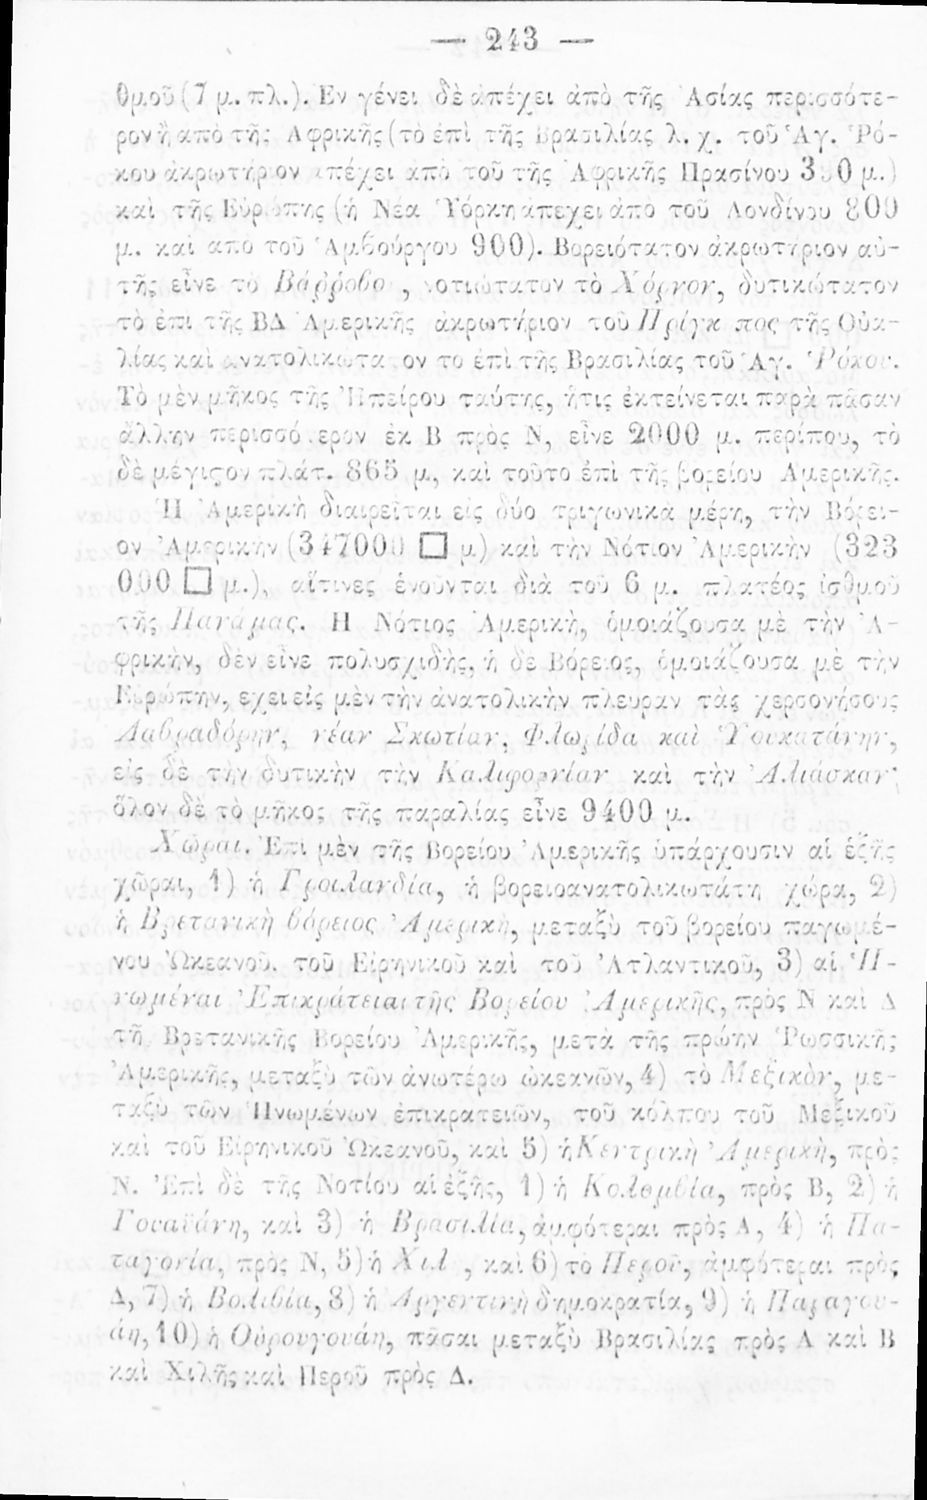 — 243 —
θμοῦ (7 μ. πλ.). Ἐν γένει δὲ ἀπέχει ἀπὸ τῆς Ἀσίας περισσότε-
ρον ἢ ἀπὸ τῆς Ἀφρικῆς (τὸ ἐπὶ τῆς Βρασιλίας λ. χ. τοῦ Ἁγ. Ῥό-
κου ἀκρωτήριον ἀπέχει ἀπὸ τοῦ τῆς Ἀφρικῆς Πρασίνου μ.)
καὶ τῆς Εὐρώπης (ἡ Νέα Ὑόρκη ἀπέχει ἀπὸ τοῦ Λονδίνου 800
μ. καὶ ἀπὸ τοῦ Ἁμβούργου 900). Βορειότατον ἀκρωτήριον αὐ-
τῆς εἶνε τὸ Βάρροβον, νοτιώτατον τὸ Χόρνον, δυτικώτατον
τὸ ἐπὶ τῆς ΒΔ Ἀμερικῆς ἀκρωτήριον τοῦ Πρίγκηπος τῆς Οὐα-
λίας καὶ ἀνατολικώτατον τὸ ἐπὶ τῆς Βρασιλίας τοῦ Ἁγ. Ῥόκου.
Τὸ μὲν μῆκος τῆς Ἠπείρου ταύτης, ἥτις ἐκτείνεται παρὰ πᾶσαν
ἄλλην περισσότερον ἐκ Β πρὸς Ν, εἶνε 2000 μ. περίπου, τὸ
δὲ μέγιστον πλάτ. 865 μ., καὶ τοῦτο ἐπὶ τῆς βορείου Ἀμερικῆς.
Ἡ Ἀμερικὴ διαιρεῖται εἰς δύο τριγωνικὰ μέρη, τὴν Βόρει-
ον Ἀμερικὴν (347000 □ μ.) καὶ τὴν Νότιον Ἀμερικὴν (323
000 □ μ.), αἵτινες ἑνοῦνται διὰ τοῦ 6 μ. πλατέος ἰσθμοῦ
τῆς Παναμᾶς. Ἡ Νότιος Ἀμερικὴ, ὁμοιάζουσα μὲ τὴν Ἀ-
φρικὴν, δὲν εἶνε πολυσχιδὴς, ἡ δὲ Βόρειος, ὁμοιάζουσα μὲ τὴν
Εὐρώπην, ἔχει εἰς μὲν τὴν ἀνατολικὴν πλευρὰν τὰς χερσονήσους
Λαβραδόρην, νέαν Σκωτίαν, Φλωρίδα καὶ Ὑουκατάνην,
εἰς δὲ τὴν δυτικὴν τὴν Καλιφορνίαν καὶ τὴν Ἀλιάσκαν·
ὅλον δὲ τὸ μῆκος τῆς παραλίας εἶνε 9400 μ.
Χῶραι. Ἐπὶ μὲν τῆς Βορείου Ἀμερικῆς ὑπάρχουσιν αἱ ἑξῆς
χῶραι, 1) ἡ Γροιλανδία, ἡ βορειοανατολικωτάτη χώρα, 2)
ἡ Βρετανικὴ βόρειος Ἀμερικὴ, μεταξὺ τοῦ βορείου παγωμέ-
νου Ὠκεανοῦ, τοῦ Εἰρηνικοῦ καὶ τοῦ Ἀτλαντικοῦ, 3) αἱ Ἡ-
νωμέναι Ἐπικράτειαι τῆς Βορείου Ἀμερικῆς, πρὸς Ν καὶ Δ
τῆ Βρετανικῆς Βορείου Ἀμερικῆς, μετὰ τῆς πρώην Ῥωσσικῆς
Ἀμερικῆς, μεταξὺ τῶν ἀνωτέρω ὠκεανῶν, 4) τὸ Μεξικὸν, με-
ταξὺ τῶν Ἡνωμένων ἐπικρατειῶν, τοῦ κόλπου τοῦ Μεξικοῦ
καὶ τοῦ Εἰρηνικοῦ Ὠκεανοῦ, καὶ 5) ἡ Κεντρικὴ Ἀμερικὴ, πρὸς
Ν. Ἐπὶ δὲ τῆς Νοτίου αἱ ἑξῆς, 1) ἡ Κολομβία, πρὸς Β, 2) ἡ
Γουαϊάνη, καὶ 3) ἡ Βρασιλία, ἀμφότεραι πρὸς Α, 4) ἡ Πα-
ταγονία, πρὸς Ν, 5) ἡ Χιλὴ, καὶ 6) τὸ Περοῦ, ἀμφότεραι πρὸς
Δ, 7) ἡ Βολιβία, 8) ἡ Ἀργεντινὴ δημοκρατία, 9) ἡ Παραγου-
άη, 10) ἡ Οὐρουγουάη, πᾶσαι μεταξὺ Βρασιλίας πρὸς Α καὶ Β
καὶ Χιλῆς καὶ Περοῦ πρὸς Δ.